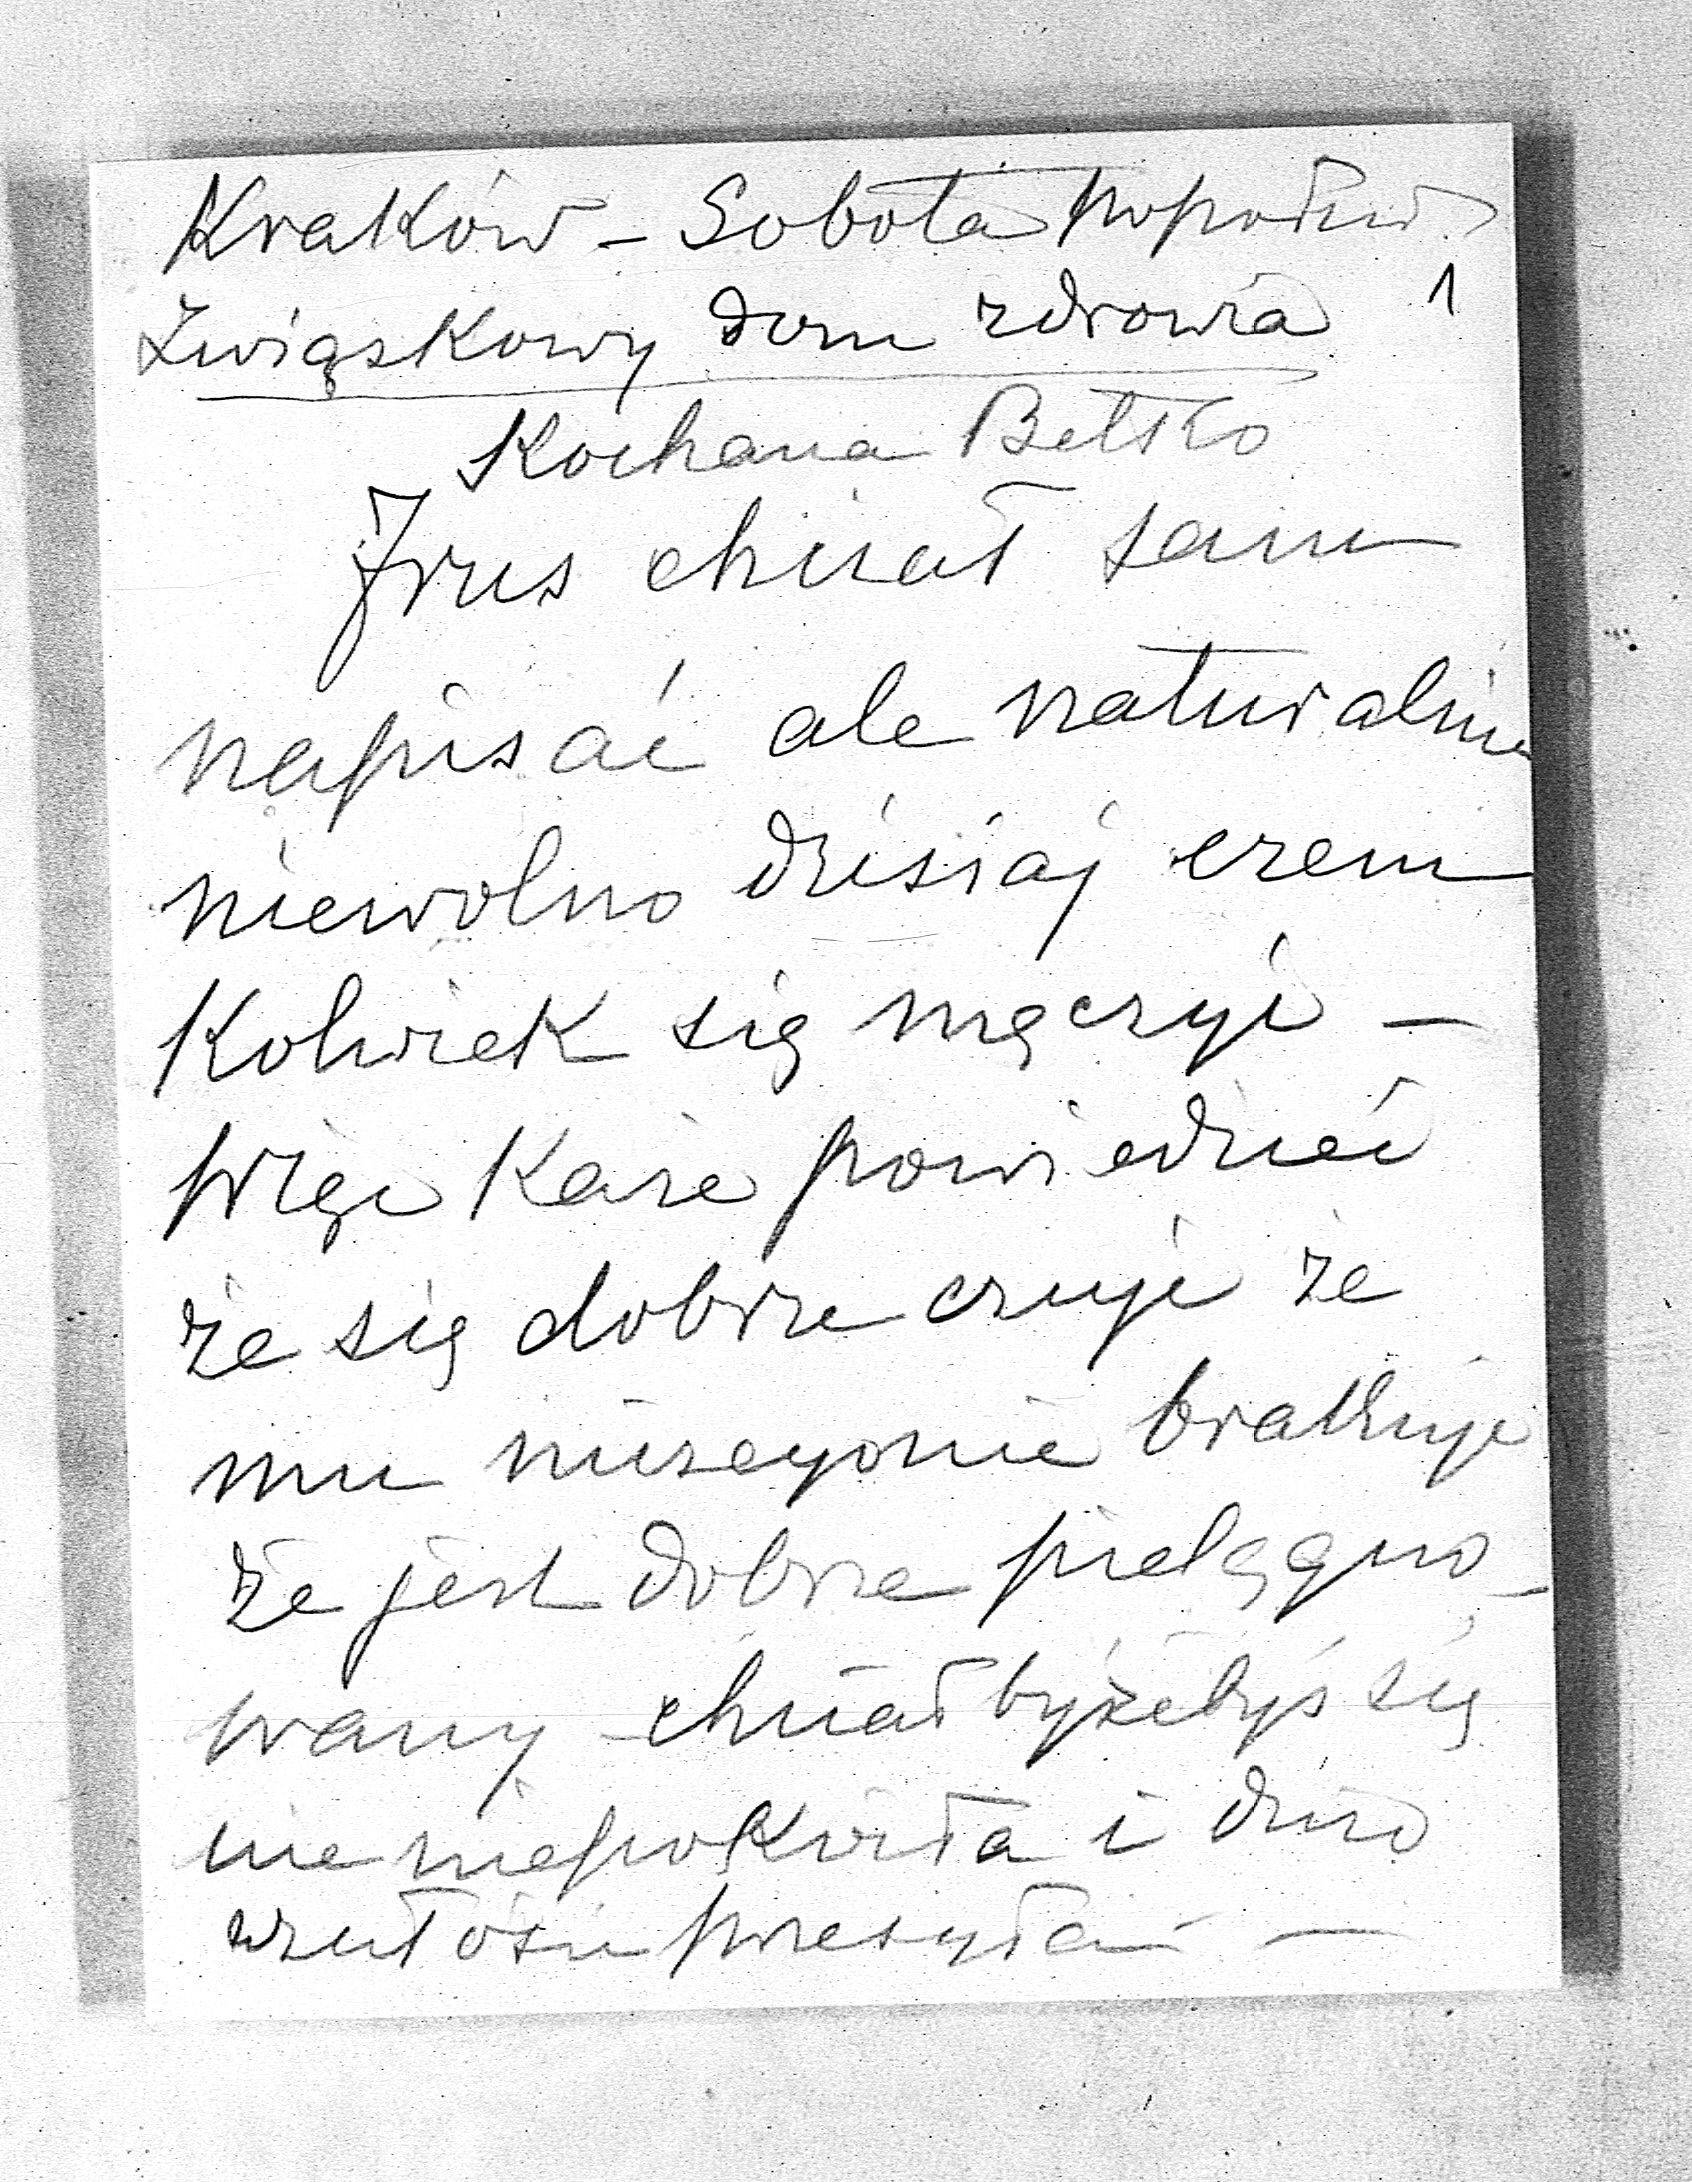 Kraków – Sobota popołud.
Związkowy dom zdrowia 1
Kochana Betko
Jrus chciał sam
napisać ale naturalnie
niewolno dzisiaj czem
kolwiek się męczyć –
więc każe powiedzieć
że się dobrze czuje że
mu niczego nie brakuje
że jest dobrze pielęgno-
wany chciałby żebyś się
nie niepokoiła i dużo
czułości przesyła –